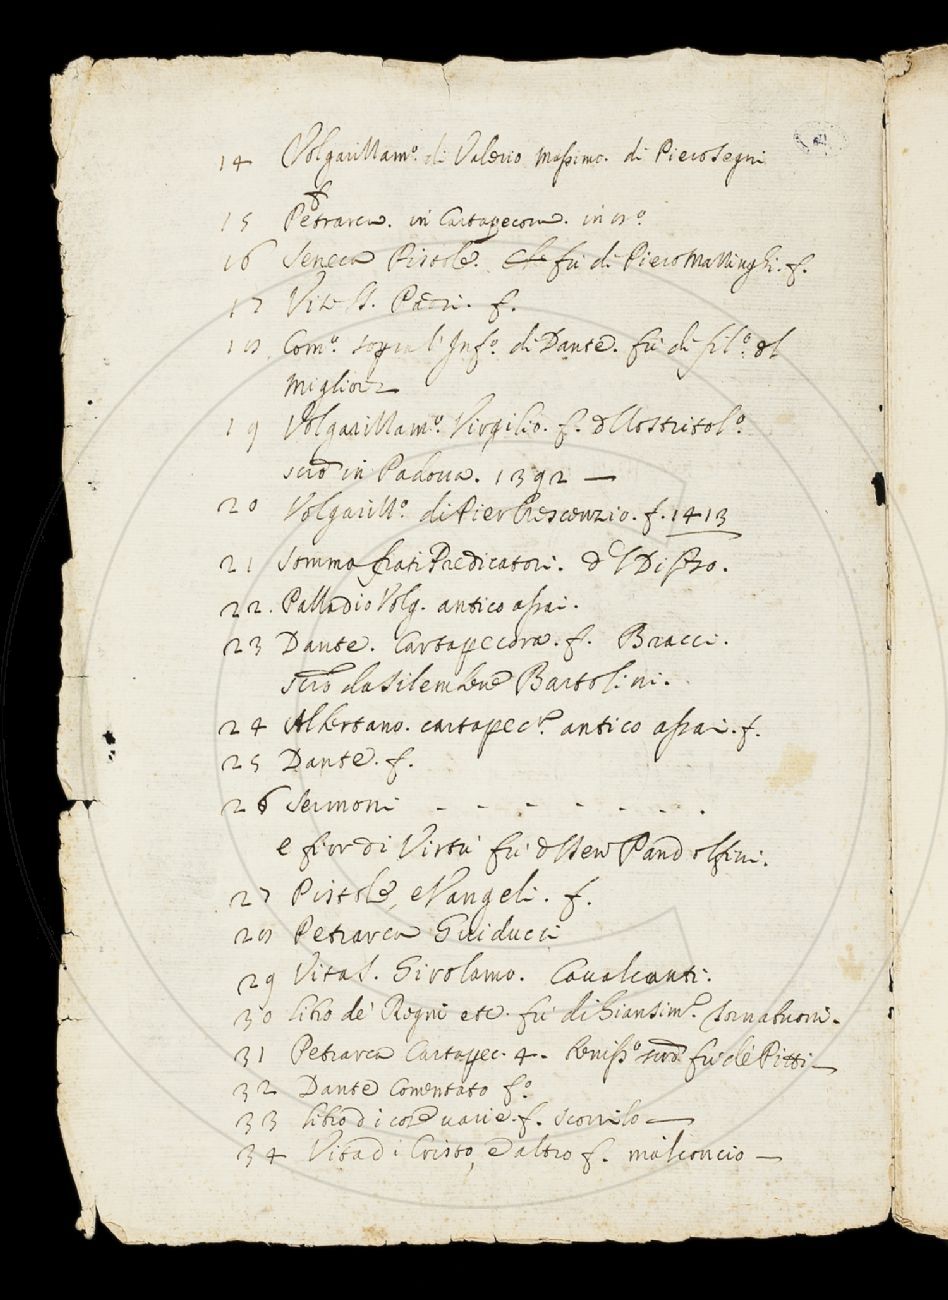 14 Volgarizzam.º di Valerio Massimo. di Piero Segni
f
15 Petrarca. in Cartapecora. in
16 Seneca Pistole. che fù di Piero Massinghi. f.
17 Vite SS. Padri. f.
18 Com.º sopra l'Inf.º di Dante. fù di fil.º del
Migliore
19 Volgarizzam.º Virgilio. f. dell
in Padova. 1392 —
20 Volgarizz.º di Pier Crescenzio. f. 1413
21 Somma frati Predicatori. del
22. Palladio Volg. antico assai.
23 Dante. Cartapecora. f. Bracci.
da Bartolini.
24 Albertano. cartapec.ª antico assai. f.
25 Dante. f.
26 Sermoni - - - - - - .
e fior di Virtù fù dell Pandolfini.
27 Pistole, e Vangeli. f.
28 Petrarca Guiducci
29 Vita S. Girolamo. Cavalcanti.
30 libro de' Regni etc. fù di Giansim.e Tornabuoni.
31 Petrarca Cartapec. 4. beniss.º fù de' Pitti —
32 Dante Comentato f.º
33 libro di cose varie. f. —
34 Vita di Cristo, ed altro f. malconcio —